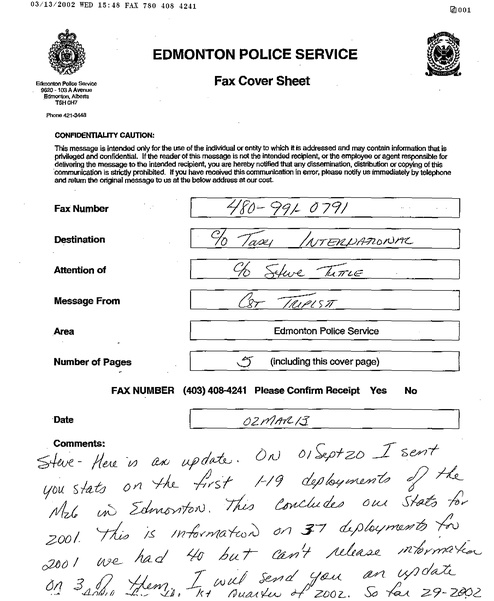 03/13/2002 WED 15:48 FAX 780 408 4241
001
EDMONTON POLICE SERVICE
Fax Cover Sheet
Edmonton Police Service
9620 - 103 A Avenue
Edmonton, Alberta
T5H 0H7
Phone 421-3448
CONFIDENTIALITY CAUTION:
This message is intended only for the use of the individual or entity to which it is addressed and may contain information that is
privileged and confidential. If the reader of this message is not the intended recipient, or the employee or agent responsible for
delivering the message to the intended recipient, you are hereby notified that any dissemination, distribution or copying of this
communication is strictly prohibited. If you have received this communication in error, please notify us immediately by telephone
and return the original message to us at the below address at our cost.
Fax Number 480-991 0791
Destination c/o Taser INTERNATIONAL
Attention of c/o Steve TUTTLE
Message From CST
Area Edmonton Police Service
Number of Pages 5 (including this cover page)
FAX NUMBER (403) 408-4241 Please Confirm Receipt Yes No
Date 02MAR13
Comments:
Steve - Here is an update. ON 01Sept20 I sent
you stats on the first 1-19 deployments of the
M26 in Edmonton. This concludes our Stats for
2001. This is information on 37 deployments for
2001 we had 40 but can't release information
on 3 of them. I will send you an update
1st Quarter of 2002. So far 29-2002